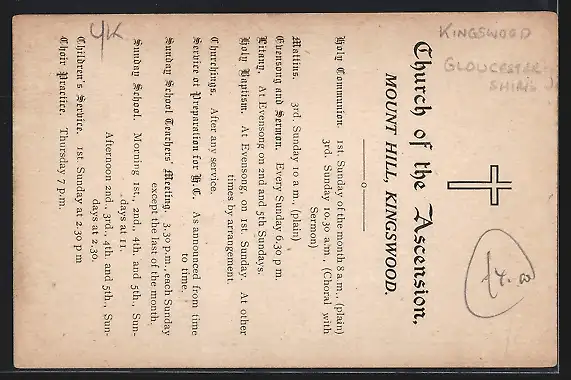 Church of the Ascension,
MOUNT HILL, KINGSWOOD.
Holy Communion. 1st. Sunday of the month 8 a.m., (plain)
3rd. Sunday 10.30 a/m. (Choral with
Sermon)
Mattins. 3rd. Sunday 10 a.m., (plain)
Evensong and Sermon. Every Sunday 6.30 p m.
Litany. At Evensong on 2nd and 5th Sundays.
Holy Baptism. At Evensong, on 1st. Sunday. At other
times by arrangement.
Churchings. After any service.
Service of Preparation for H.C. As announced from time
to time.
Sunday School Teachers' Meeting. 3.30 p.m., each Sunday
except the last of the month.
Sunday School. Morning 1st., 2nd., 4th. and 5th., Sun-
days at 11.
Afternoon 2nd., 3rd., 4th. and 5th., Sun-
days at 2.30.
Children's Service. 1st. Sunday at 2.30 p m
Choir Practice. Thursday 7 p.m.
KINGSWOOD
GLOUCESTER
SHIRE
UK